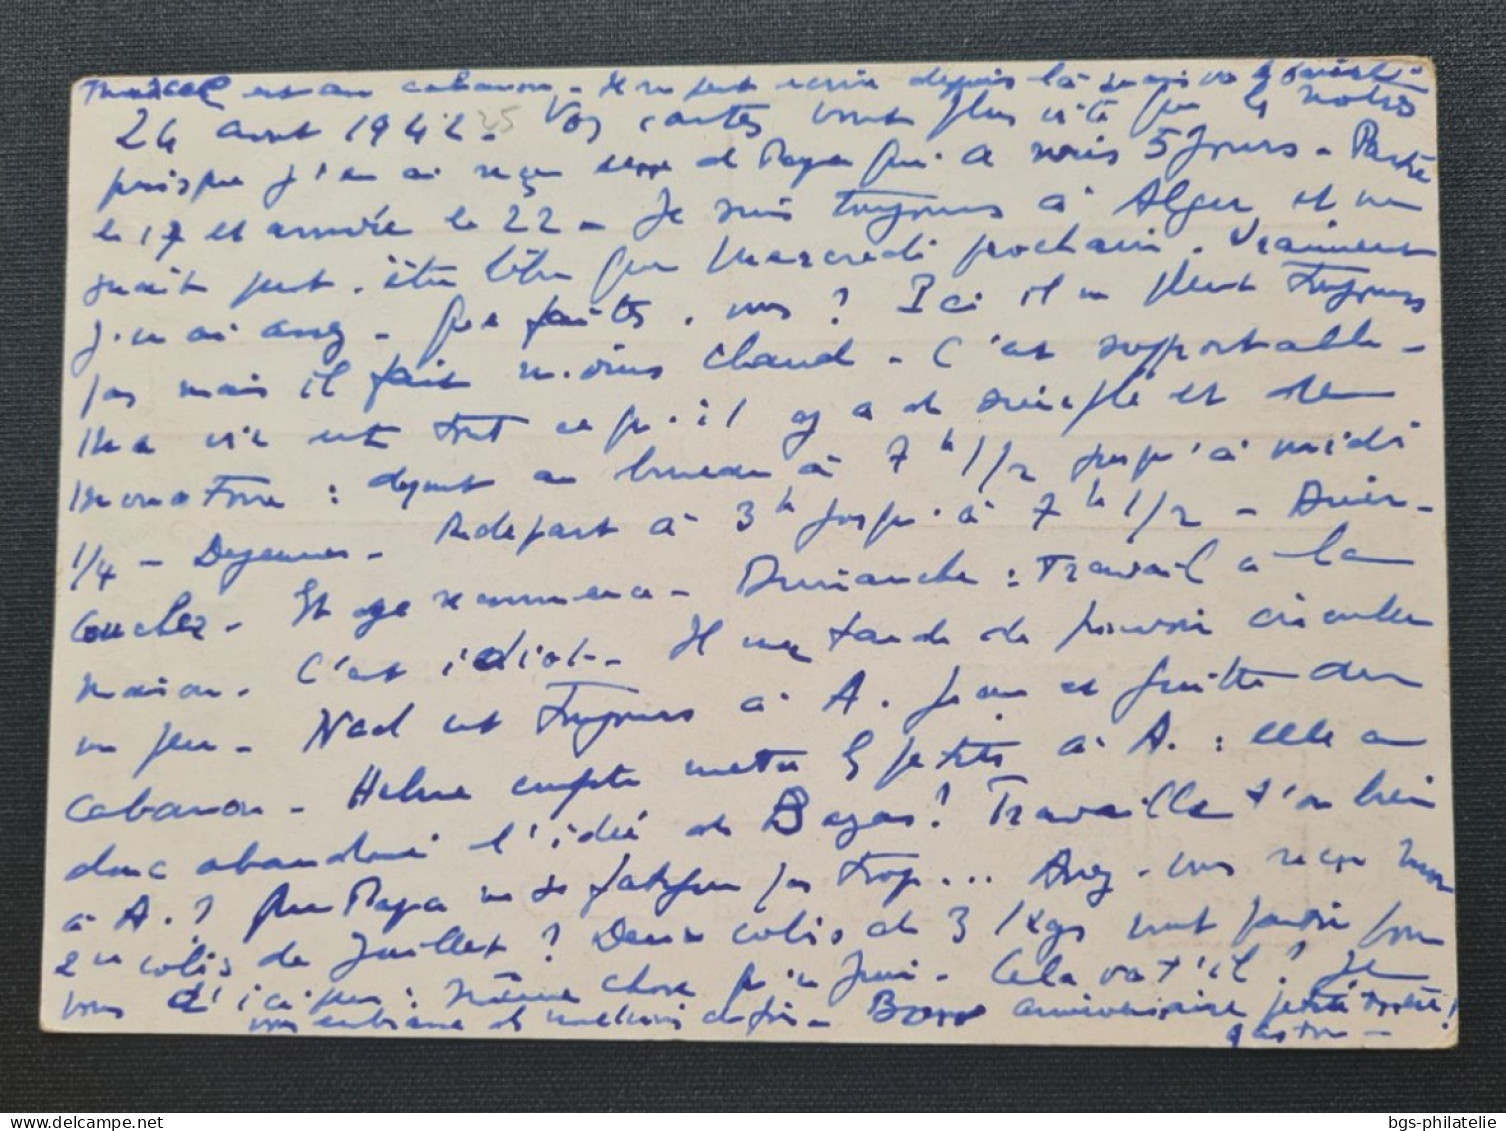 Marcel est au cabanon - Il ne peut écrire depuis là mais va
24 aout 1942. 25 Vos cartes vont plus vite que les notres
puisque j'en ai reçu une de Papa qui a mis 5 jours - Partie
le 17 et arrivée le 22 - Je suis toujours à Alger et ne
serait peut-être libre que mercredi prochain. Vraiment
j'en ai assez - Que faites-vous ? Ici il ne pleut toujours
pas mais il fait moins chaud - C'est supportable -
Ma vie est tout ce qu'il y a de simple et de
monotone : départ au bureau à 7h 1/2 jusqu'à midi
1/4 - Dejeuner - Redépart à 3h jusqu'à 7h 1/2 - Diner -
Coucher - Et ça recommence - Dimanche : Travail à la
maison. C'est idiot - Il me tarde de pouvoir circuler
un peu - Nad est toujours à A. Jean et au
cabanon - Helène compte mettre petits à A. : elle a
donc abandonné l'idée de Bayas ! Travaille-t'on bien
à A. ? Que Papa ne se fatigue pas trop... Avez-vous reçu mon
2me colis de Juillet ? Deux colis de 3 Kgs vont partir pour
vous d'ici peu : même chose qu'en Juin - Cela va t'il ? Je
vous embrasse et Bon anniversaire petite !
Gaston -
bgs-philatelie